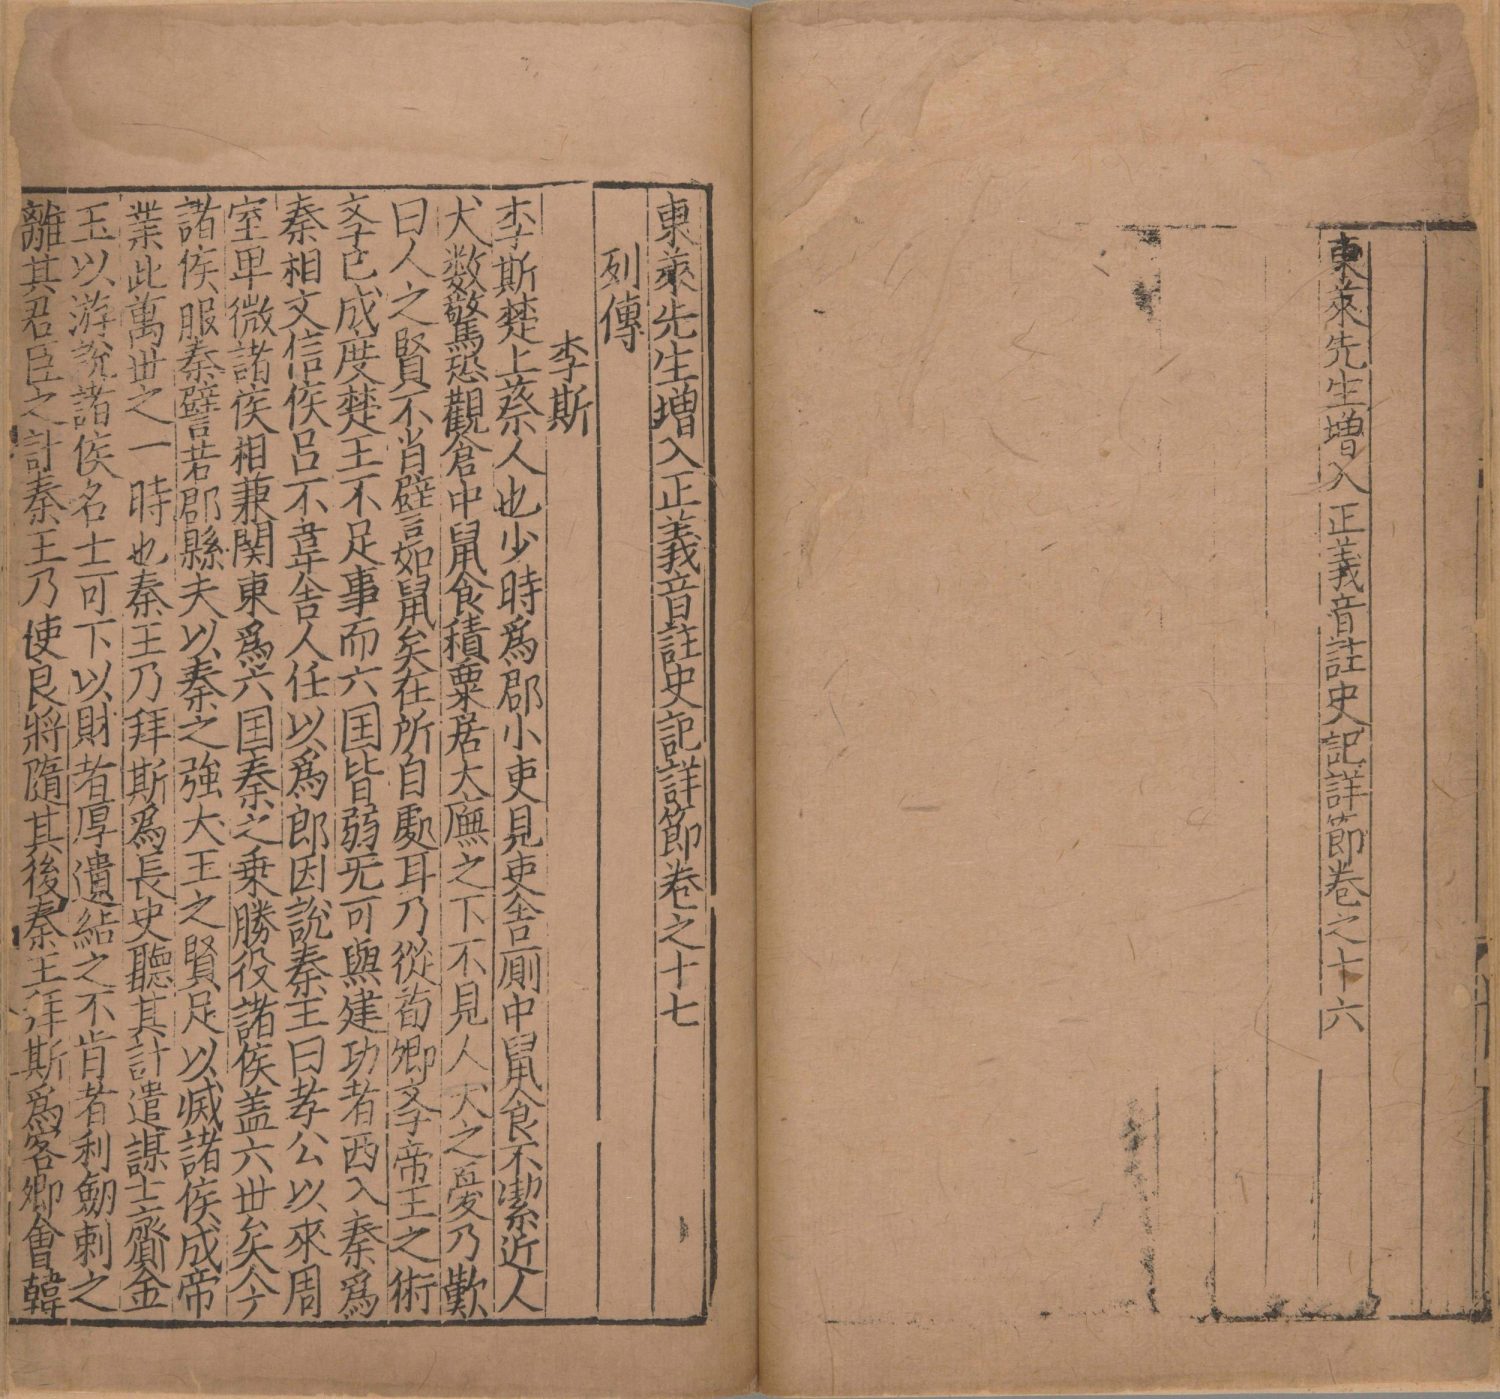 東萊先生增入正義音註史記詳節卷之十六
東萊先生增入正義音註史記詳節卷之十七
列傳
李斯
李斯楚上蔡人也少時爲郡小吏見吏舍厠中鼠食不潔近人
犬数驚恐觀倉中鼠食積粟居大廡之下不見人犬之憂乃歎
曰人之賢不肖譬如鼠矣在所自處耳乃從荀卿斈帝王之術
斈已成度楚王不足事而六国皆弱无可與建功者西入秦爲
秦相文信侯吕不韋舍人任以爲郎因說秦王曰孝公以來周
室卑微諸侯相兼関東爲六国秦之乗勝役諸侯盖六世矣今
諸侯服秦譬若郡縣夫以秦之強大王之賢足以滅諸侯成帝
業此萬世之一時也秦王乃拜斯爲長史聽其計遣謀士齎金
玉以游說諸侯名士可下以財者厚遺結之不肯者利劒刺之
離其君臣之計秦王乃使良將隨其後秦王拜斯爲客卿會韓